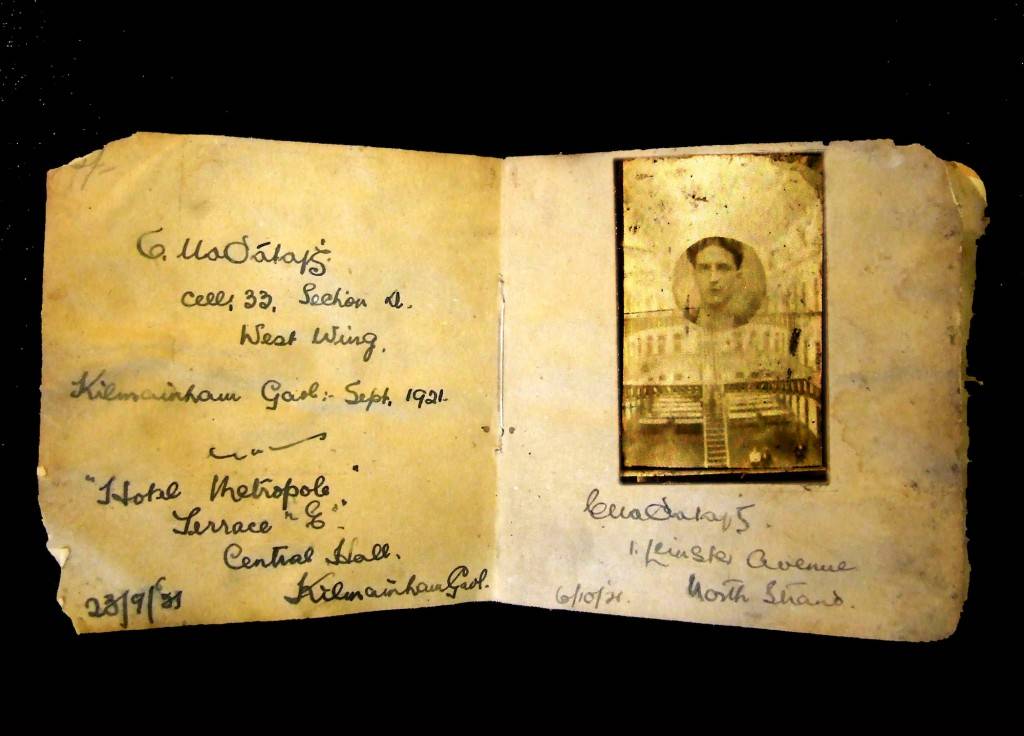 cell, 33, Section D.
West Wing.
Kilmainham Gaol:- Sept. 1921.
"Hotel Metropole"
Terrace "E".
Central Hall.
Kilmainham Gaol.
23/9/'21
1. Leinster Avenue
North Strand.
6/10/21.